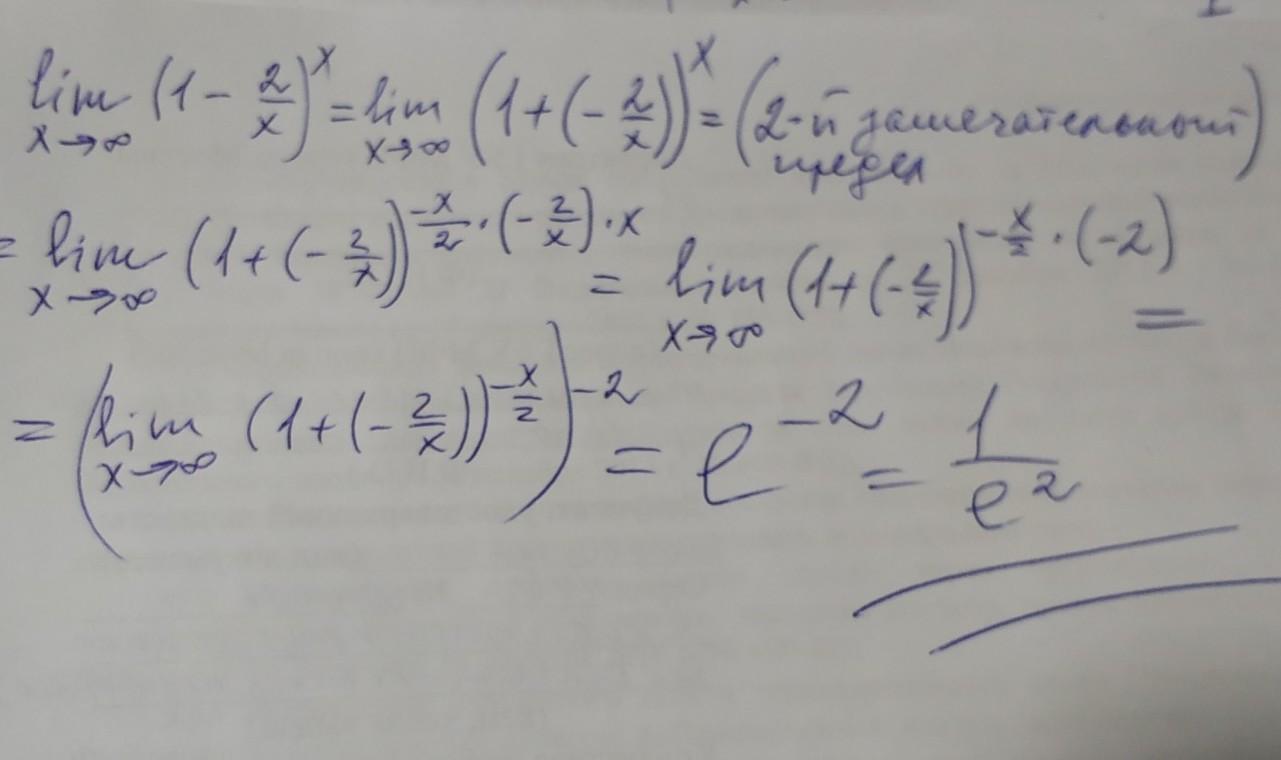 lim x→∞ (1 - 2/x)^x = lim x→∞ (1 + (-2/x))^x = (2-й замечательный предел)
= lim x→∞ (1 + (-2/x))^(-x/2 · (-2/x) · x) = lim x→∞ (1 + (-2/x))^(-x/2 · (-2)) =
= (lim x→∞ (1 + (-2/x))^(-x/2))^(-2) = e^(-2) = 1/e^2